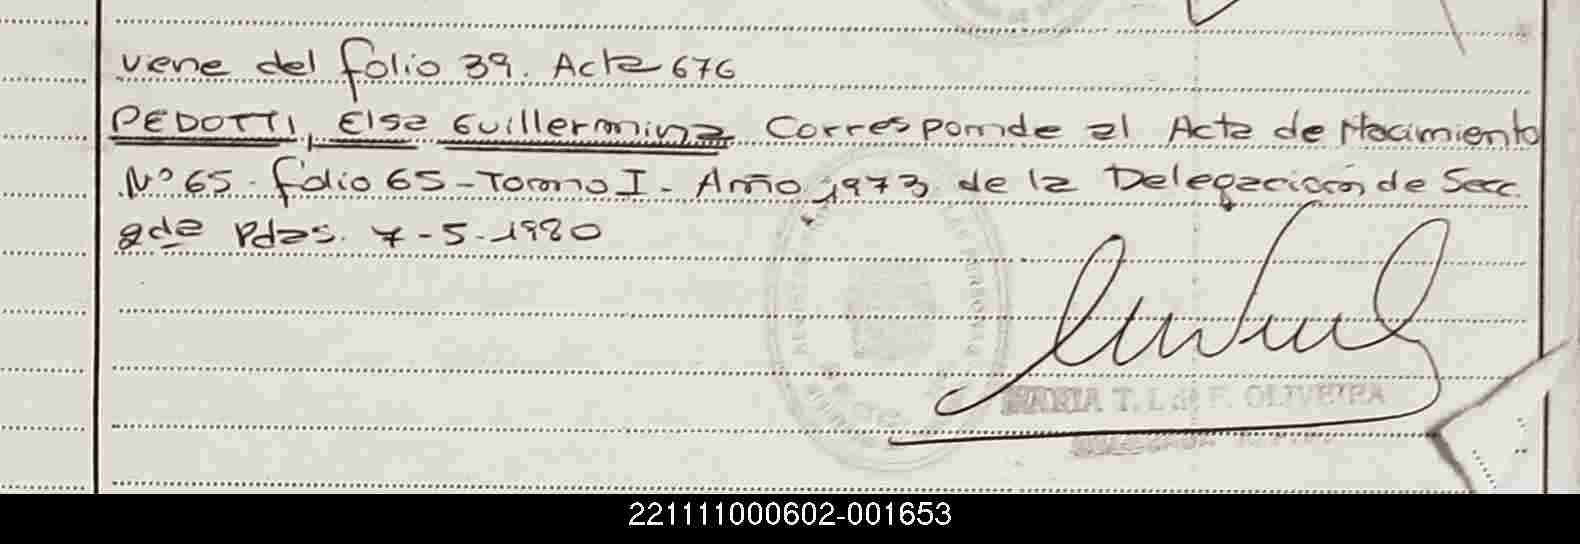 viene del folio 39. Acta 676
PEDOTTI, Elsa Guillermina Corresponde al Acta de Nacimiento
Nº 65. folio 65 - Tomo I - Año 1973 de la Delegación de Secc.
2da Pdas. 7-5-1980
MARIA T. L. de F. OLIVEIRA
221111000602-001653